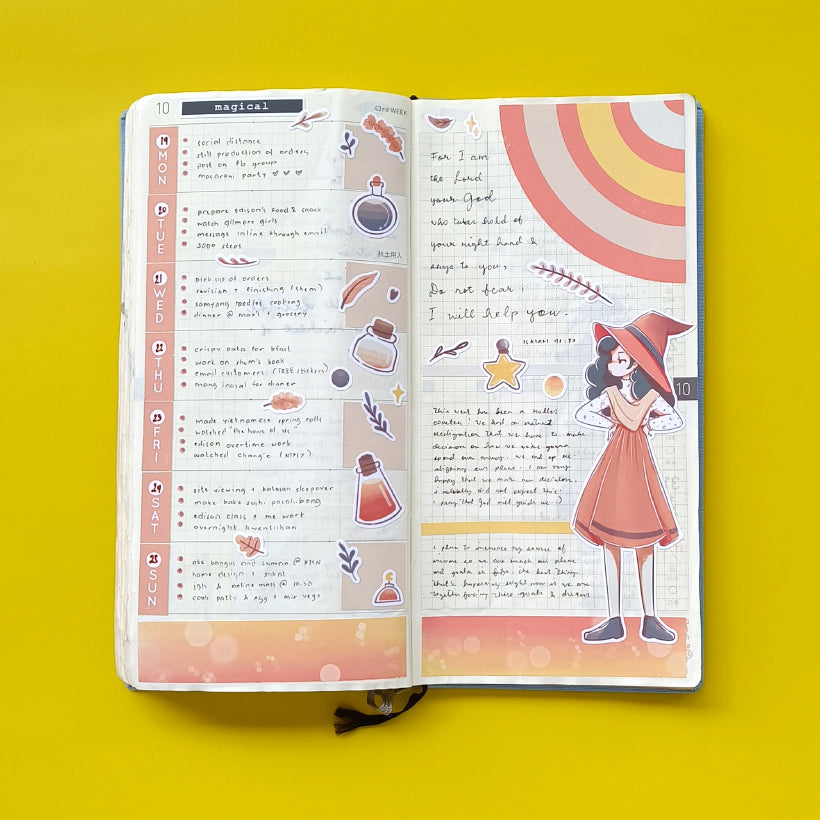 10
magical
43rd WEEK
19
MON
social distance
still production of orders
post on fb group
macaroni party
20
TUE
prepare edison's food & snack
watch gilmore girls
message inline through email
3000 steps
秋土用入
21
WED
pick up of orders
revision + finishing (shem)
samyang noodles cooking
dinner @ max's + grocery
22
THU
crispy pata for bfast
work on shem's book
email customers (FREE stickers)
mang inasal for dinner
23
FRI
made vietnamese spring rolls
watched "the hows of us"
edison overtime work
watched chang'e (NTFLX)
24
SAT
site viewing + batasan sleepover
make bake sushi pasalubong
edison class + me work
overnight kwentuhan
25
SUN
home design +
& online mass @ 10:30
cook patty & egg + mix vegs
For I am
the Lord
your God
who takes hold of
your right hand &
says to you,
Do not fear;
I will help you.
ISAIAH 41:13
10
This week has been a roller
coaster! We had an
that we have to make
decision on how we
spend our money. We end up
our plans. I am very
happy that we made our decision.
I actually did not expect this.
I pray that God will guide us :)
I plan to increase my source of
income so we can reach our plans
and goals in
that's happening right now is we are
together these goals & dreams